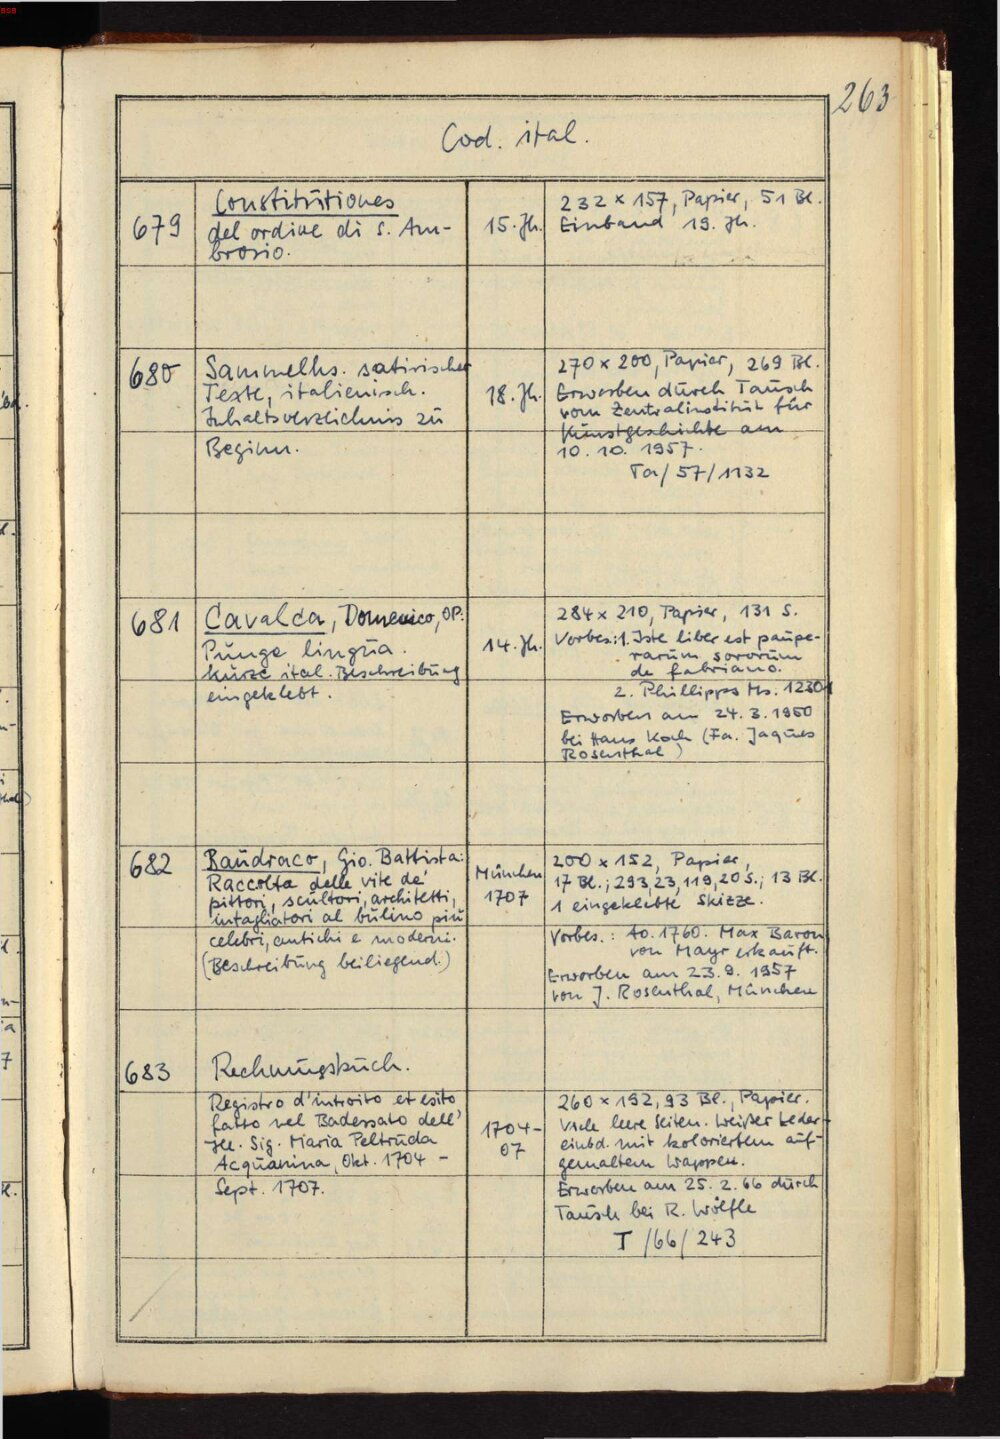 263
Cod. ital.
679
Constitutiones
del ordine di S. Am-
brosio.
15. Jh.
232 x 157, Papier, 51 Bl.
Einband 19. Jh.
680
Sammelhs. satirischer
Texte, italienisch.
Inhaltsverzeichnis zu
Beginn.
18. Jh.
270 x 200, Papier, 269 Bl.
Erworben durch Tausch
vom Zentralinstitut für
Kunstgeschichte am
10. 10. 1957.
Ta/57/1132
681
Cavalca, Domenico, OP.
Punge lingua.
kurze ital. Beschreibung
eingeklebt.
14. Jh.
284 x 210, Papier, 131 S.
Vorbes.: 1. Iste liber est paupe-
rarum sororum
de fabriano.
2. Phillipps Ms. 12301
Erworben am 24. 3. 1950
bei Hans Koch (Fa. Jaques
Rosenthal)
682
Baudraco, Gio. Battista:
Raccolta delle vite de'
pittori, scultori, architetti,
intagliatori al bulino più
celebri, antichi e moderni.
(Beschreibung beiliegend.)
München
1707
200 x 152, Papier,
17 Bl.; 293, 23, 119, 20 S.; 13 Bl.
1 eingeklebte Skizze.
Vorbes.: Ao. 1760. Max Baron
von Mayr erkauft.
Erworben am 23. 9. 1957
von J. Rosenthal, München
683
Rechnungsbuch.
Registro d'introito et esito
fatto nel Badessato dell'
Ill. Sig. Maria Peltruda
Acquanina, Okt. 1704 -
Sept. 1707.
1704-
07
260 x 192, 93 Bl., Papier.
Viele leere Seiten. Weißer Leder-
einbd. mit koloriertem auf-
gemaltem Wappen.
Erworben am 25. 2. 66 durch
Tausch bei R. Wölfle
T /66/ 243